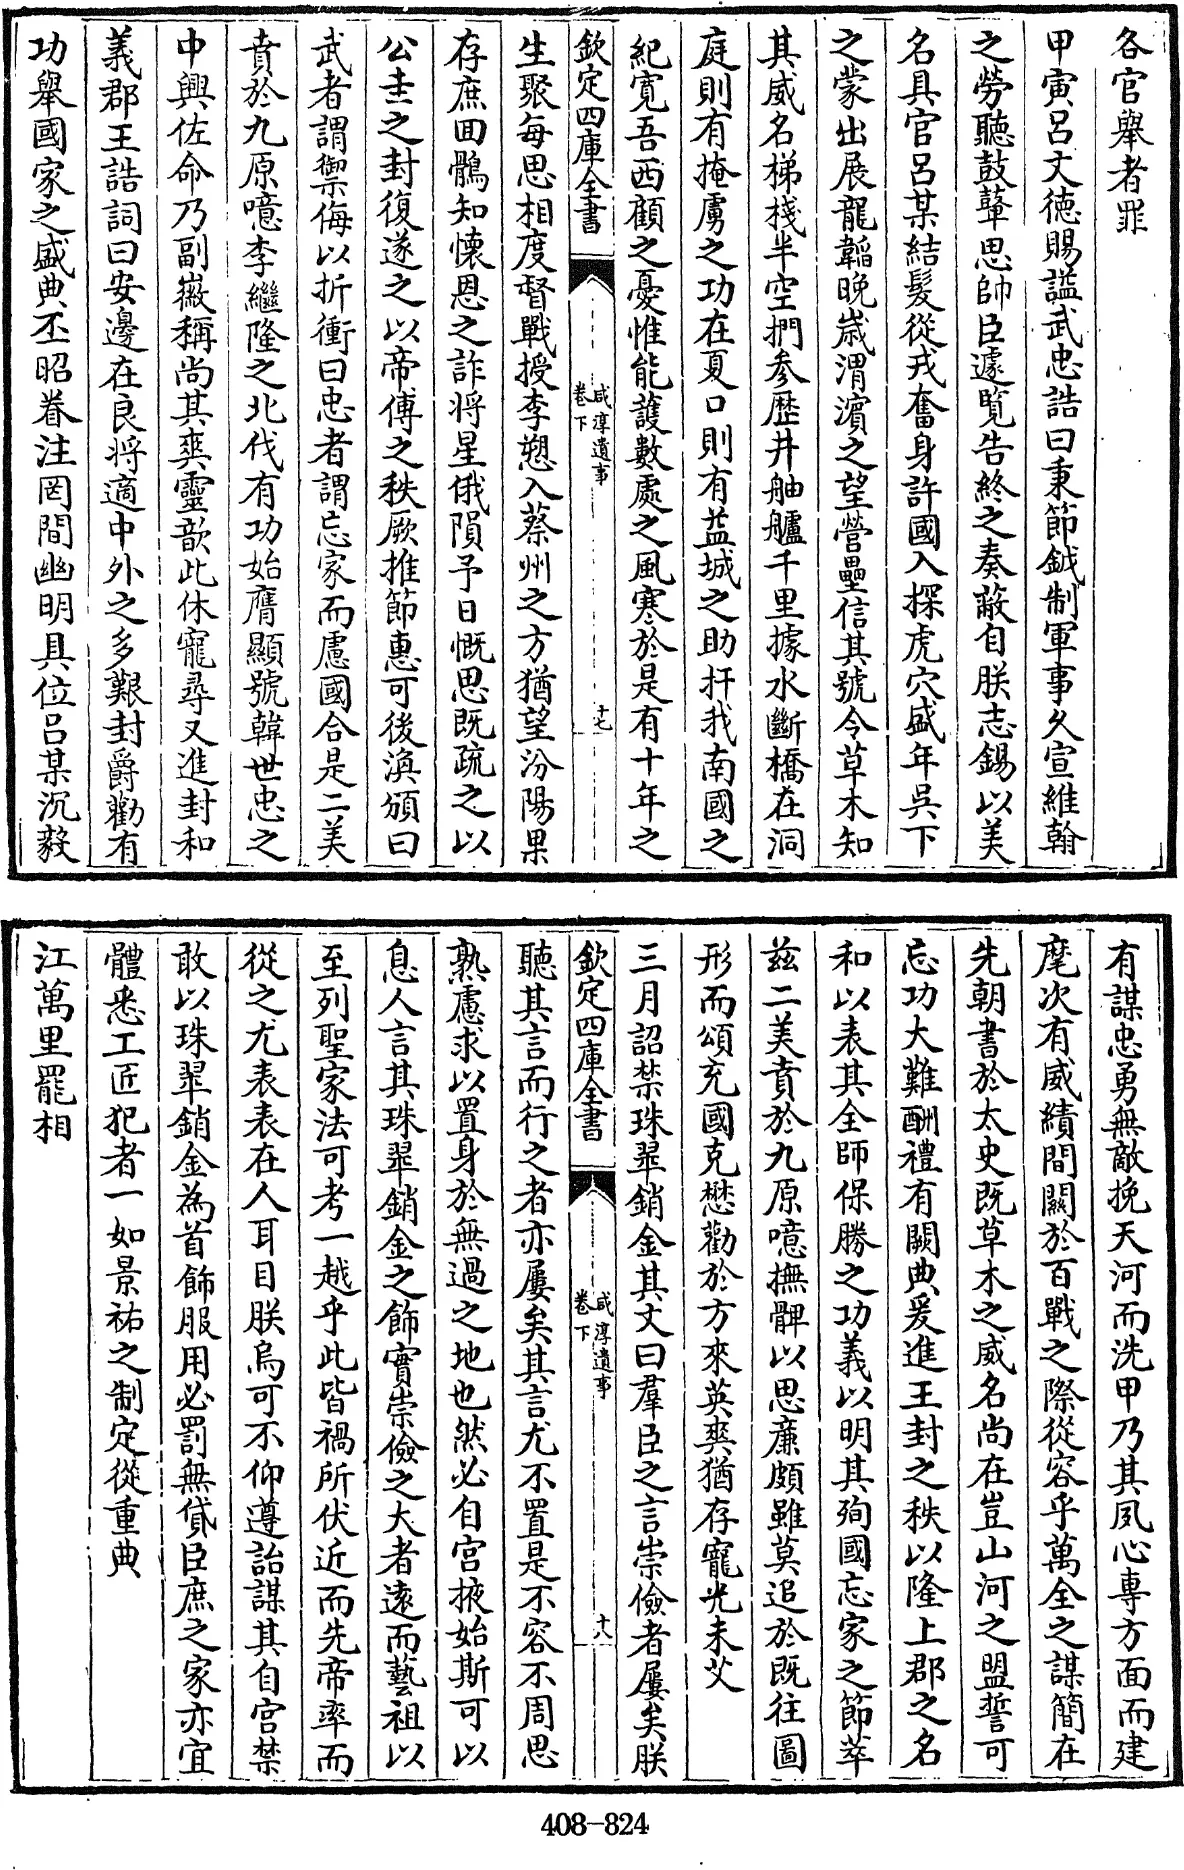 各官舉者罪
甲寅吕文德賜謚武忠誥曰秉節鉞制軍事久宣維翰
之勞聽鼓鼙思帥臣遽覽告終之奏蔽自朕志錫以美
名具官吕某結髮從戎奮身許國入探虎穴盛年吳下
之蒙出展龍韜晚歲渭濱之望營壘信其號令草木知
其威名梯棧半空捫參歷井舳艫千里據水斷橋在洞
庭則有掩虜之功在夏口則有益城之助扞我南國之
紀寛吾西顧之憂惟能護數處之風寒於是有十年之
欽定四庫全書
咸淳遺事
卷下
十七
生聚每思相度督戰授李愬入蔡州之方猶望汾陽果
存庶回鶻知懷恩之詐將星俄隕予日慨思既疏之以
公圭之封復遂之以帝傅之秩厥推節惠可後渙頒曰
武者謂禦侮以折衝曰忠者謂忘家而慮國合是二美
賁於九原噫李繼隆之北伐有功始膺顯號韓世忠之
中興佐命乃副徽稱尚其英靈歆此休寵尋又進封和
義郡王誥詞曰安邊在良將適中外之多艱封爵勸有
功舉國家之盛典丕昭眷注罔間幽明具位吕某沉毅
有謀忠勇無敵挽天河而洗甲乃其夙心專方面而建
麾次有威績間關於百戰之際從容乎萬全之謀簡在
先朝書於太史既草木之威名尚在豈山河之盟誓可
忘功大難酬禮有闕典爰進王封之秩以隆上郡之名
和以表其全師保勝之功義以明其殉國忘家之節萃
兹二美賁於九原噫撫髀以思廉頗雖莫追於既往圖
形而頌充國克懋勸於方來英爽猶存寵光未艾
三月詔禁珠翠銷金其文曰羣臣之言崇儉者屢矣朕
欽定四庫全書
咸淳遺事
卷下
十八
聽其言而行之者亦屢矣其言尤不置是不容不周思
熟慮求以置身於無過之地也然必自宫掖始斯可以
息人言其珠翠銷金之飾實崇儉之大者遠而藝祖以
至列聖家法可考一越乎此皆禍所伏近而先帝率而
從之尤表表在人耳目朕烏可不仰遵詒謀其自宫禁
敢以珠翠銷金為首飾服用必罰無貸臣庶之家亦宜
體悉工匠犯者一如景祐之制定從重典
江萬里罷相
408-824